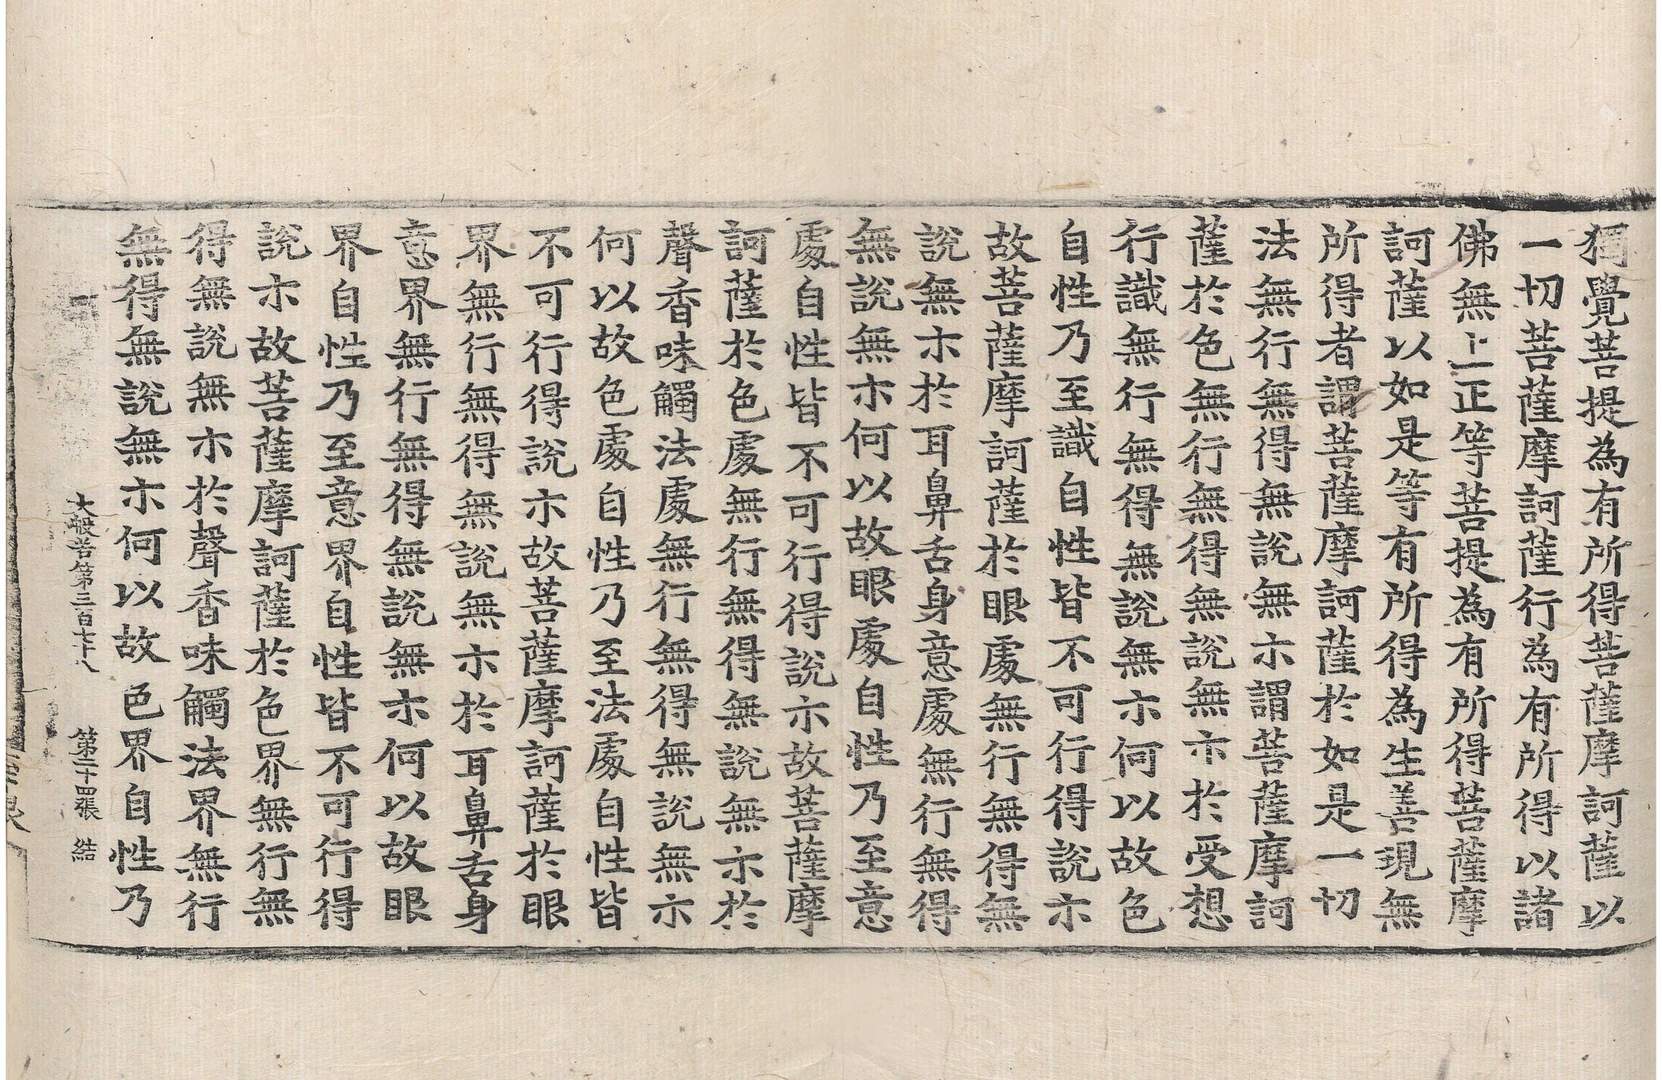 獨覺菩提為有所得菩薩摩訶薩以
一切菩薩摩訶薩行為有所得以諸
佛無上正等菩提為有所得菩薩摩
訶薩以如是等有所得為生善現無
所得者謂菩薩摩訶薩於如是一切
法無行無得無說無示謂菩薩摩訶
薩於色無行無得無說無示於受想
行識無行無得無說無示何以故色
自性乃至識自性皆不可行得說示
故菩薩摩訶薩於眼處無行無得無
說無示於耳鼻舌身意處無行無得
無說無示何以故眼處自性乃至意
處自性皆不可行得說示故菩薩摩
訶薩於色處無行無得無說無示於
聲香味觸法處無行無得無說無示
何以故色處自性乃至法處自性皆
不可行得說示故菩薩摩訶薩於眼
界無行無得無說無示於耳鼻舌身
意界無行無得無說無示何以故眼
界自性乃至意界自性皆不可行得
說示故菩薩摩訶薩於色界無行無
得無說無示於聲香味觸法界無行
無得無說無示何以故色界自性乃
大般若第三百七十八 第二十四張 結